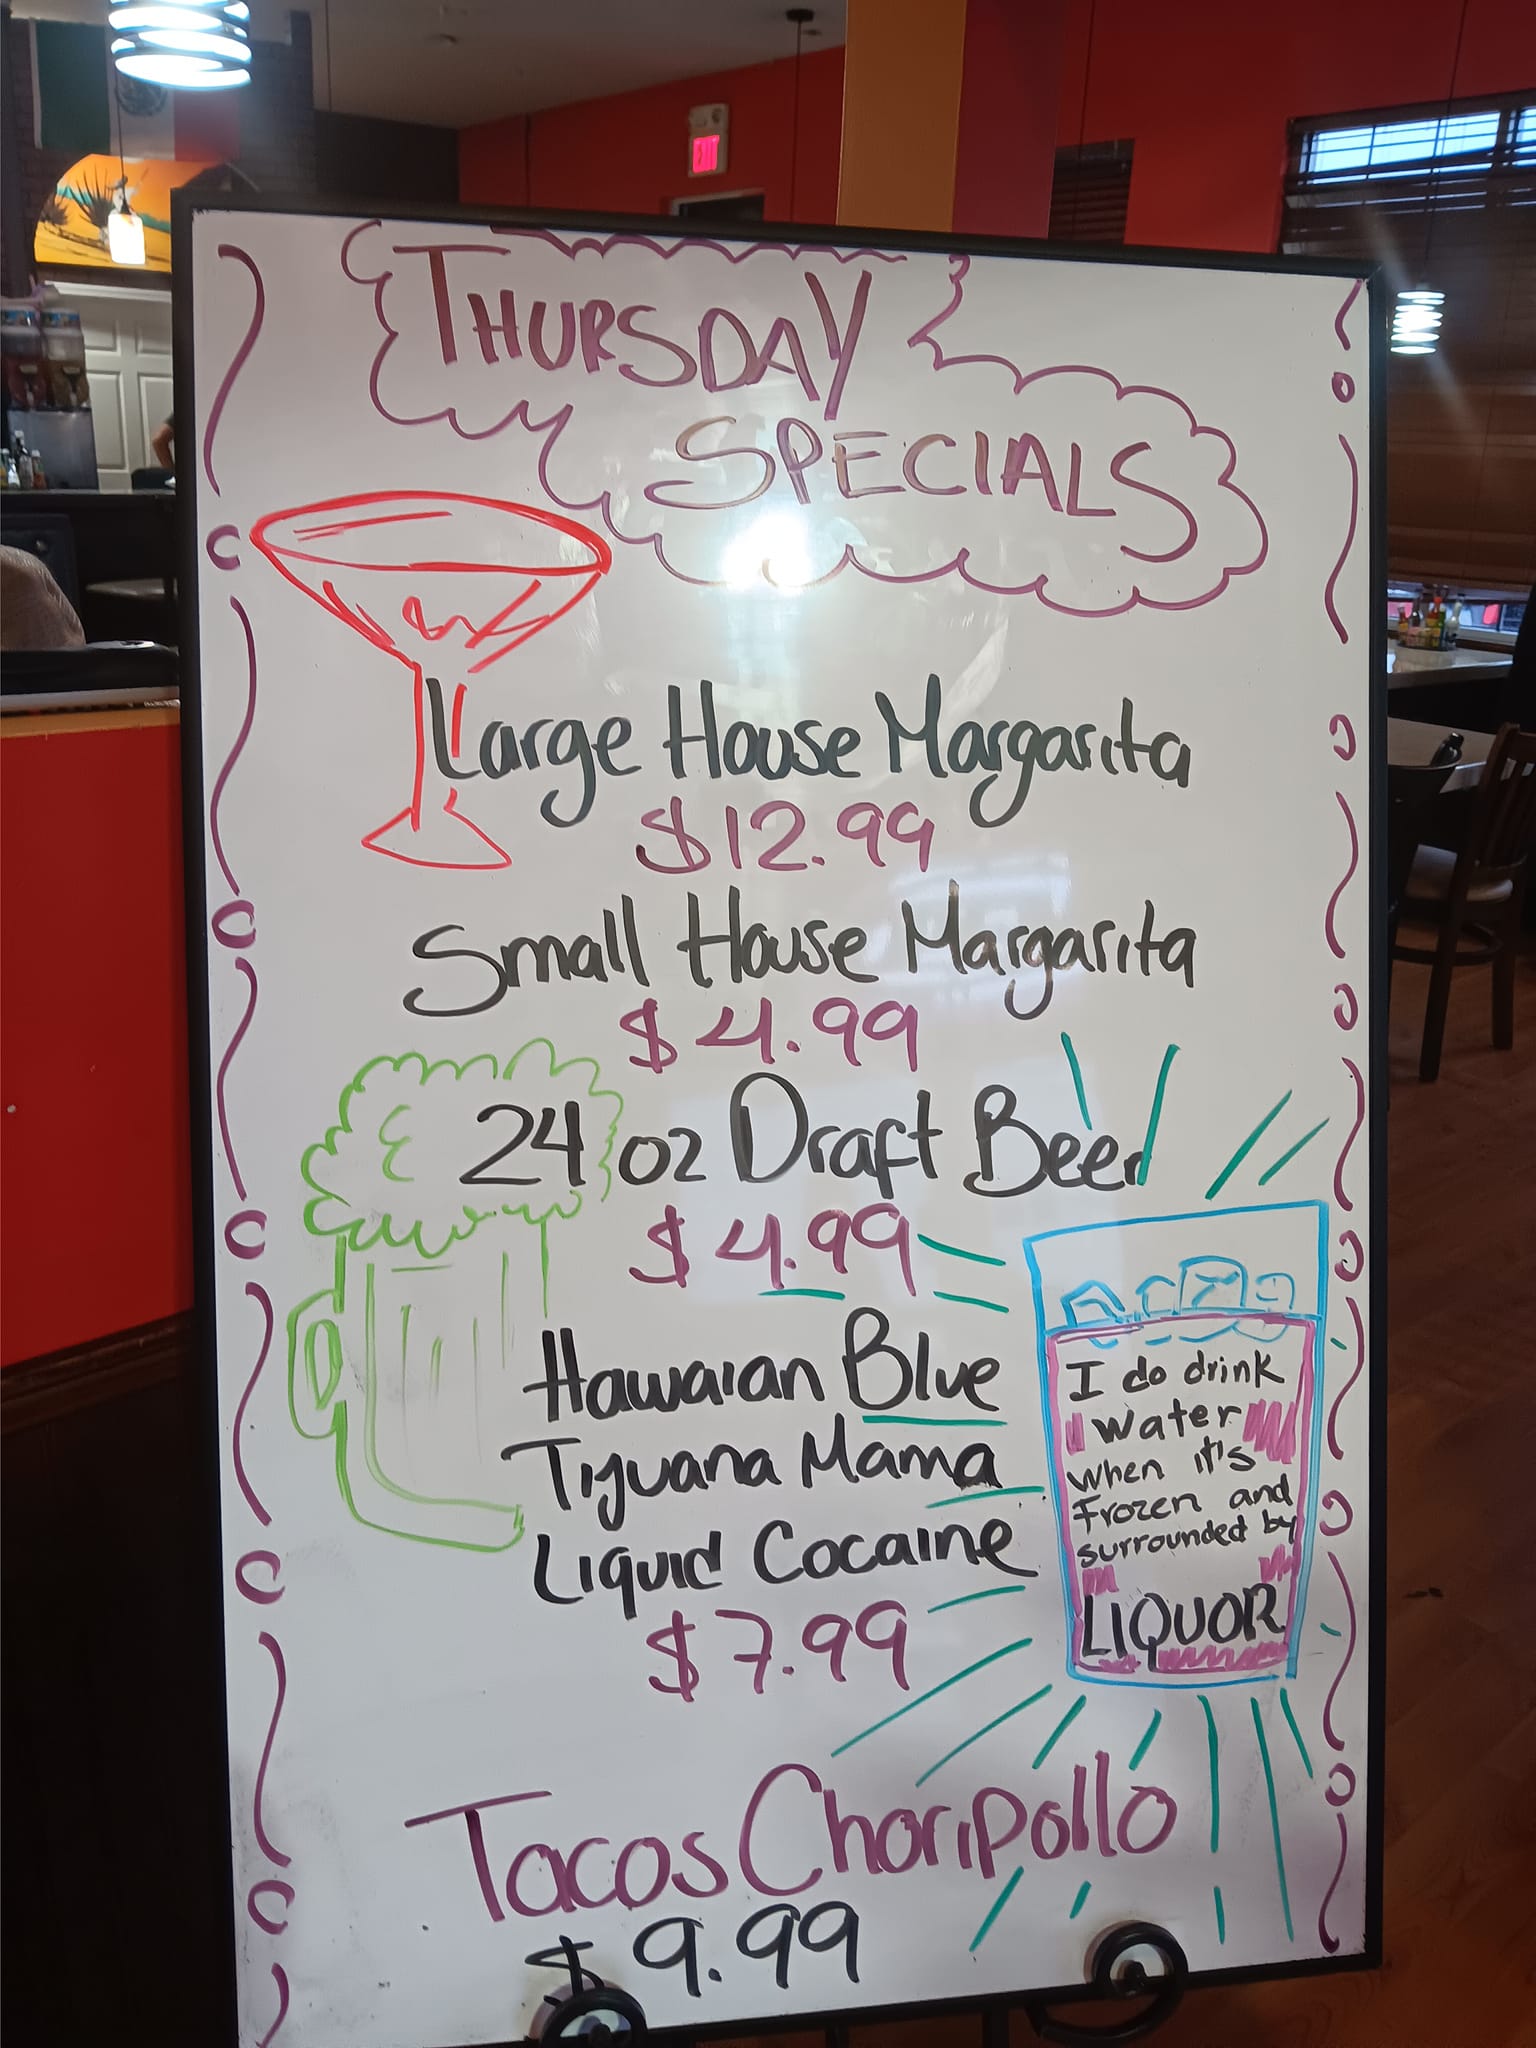 THURSDAY
SPECIALS
Large House Margarita
$12.99
Small House Margarita
$4.99
24 oz Draft Beer
$4.99
Hawaian Blue
Tijuana Mama
Liquid Cocaine
$7.99
I do drink
water
when it's
Frozen and
surrounded by
LIQUOR
Tacos Choripollo
$9.99
EXIT